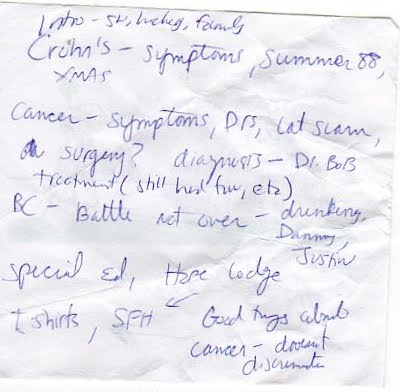 Intro - SH, hockey, family
Crohn's - symptoms, summer 88,
XMAS
Cancer - symptoms, DRS, cat scan,
surgery? diagnosis - Dr. BOB
treatment (still had fun, etc)
BC - Battle not over - drinking,
Danny,
Justin
special ed, Hope Lodge
t-shirts, SFH
Good things about
cancer - doesnt
discriminate